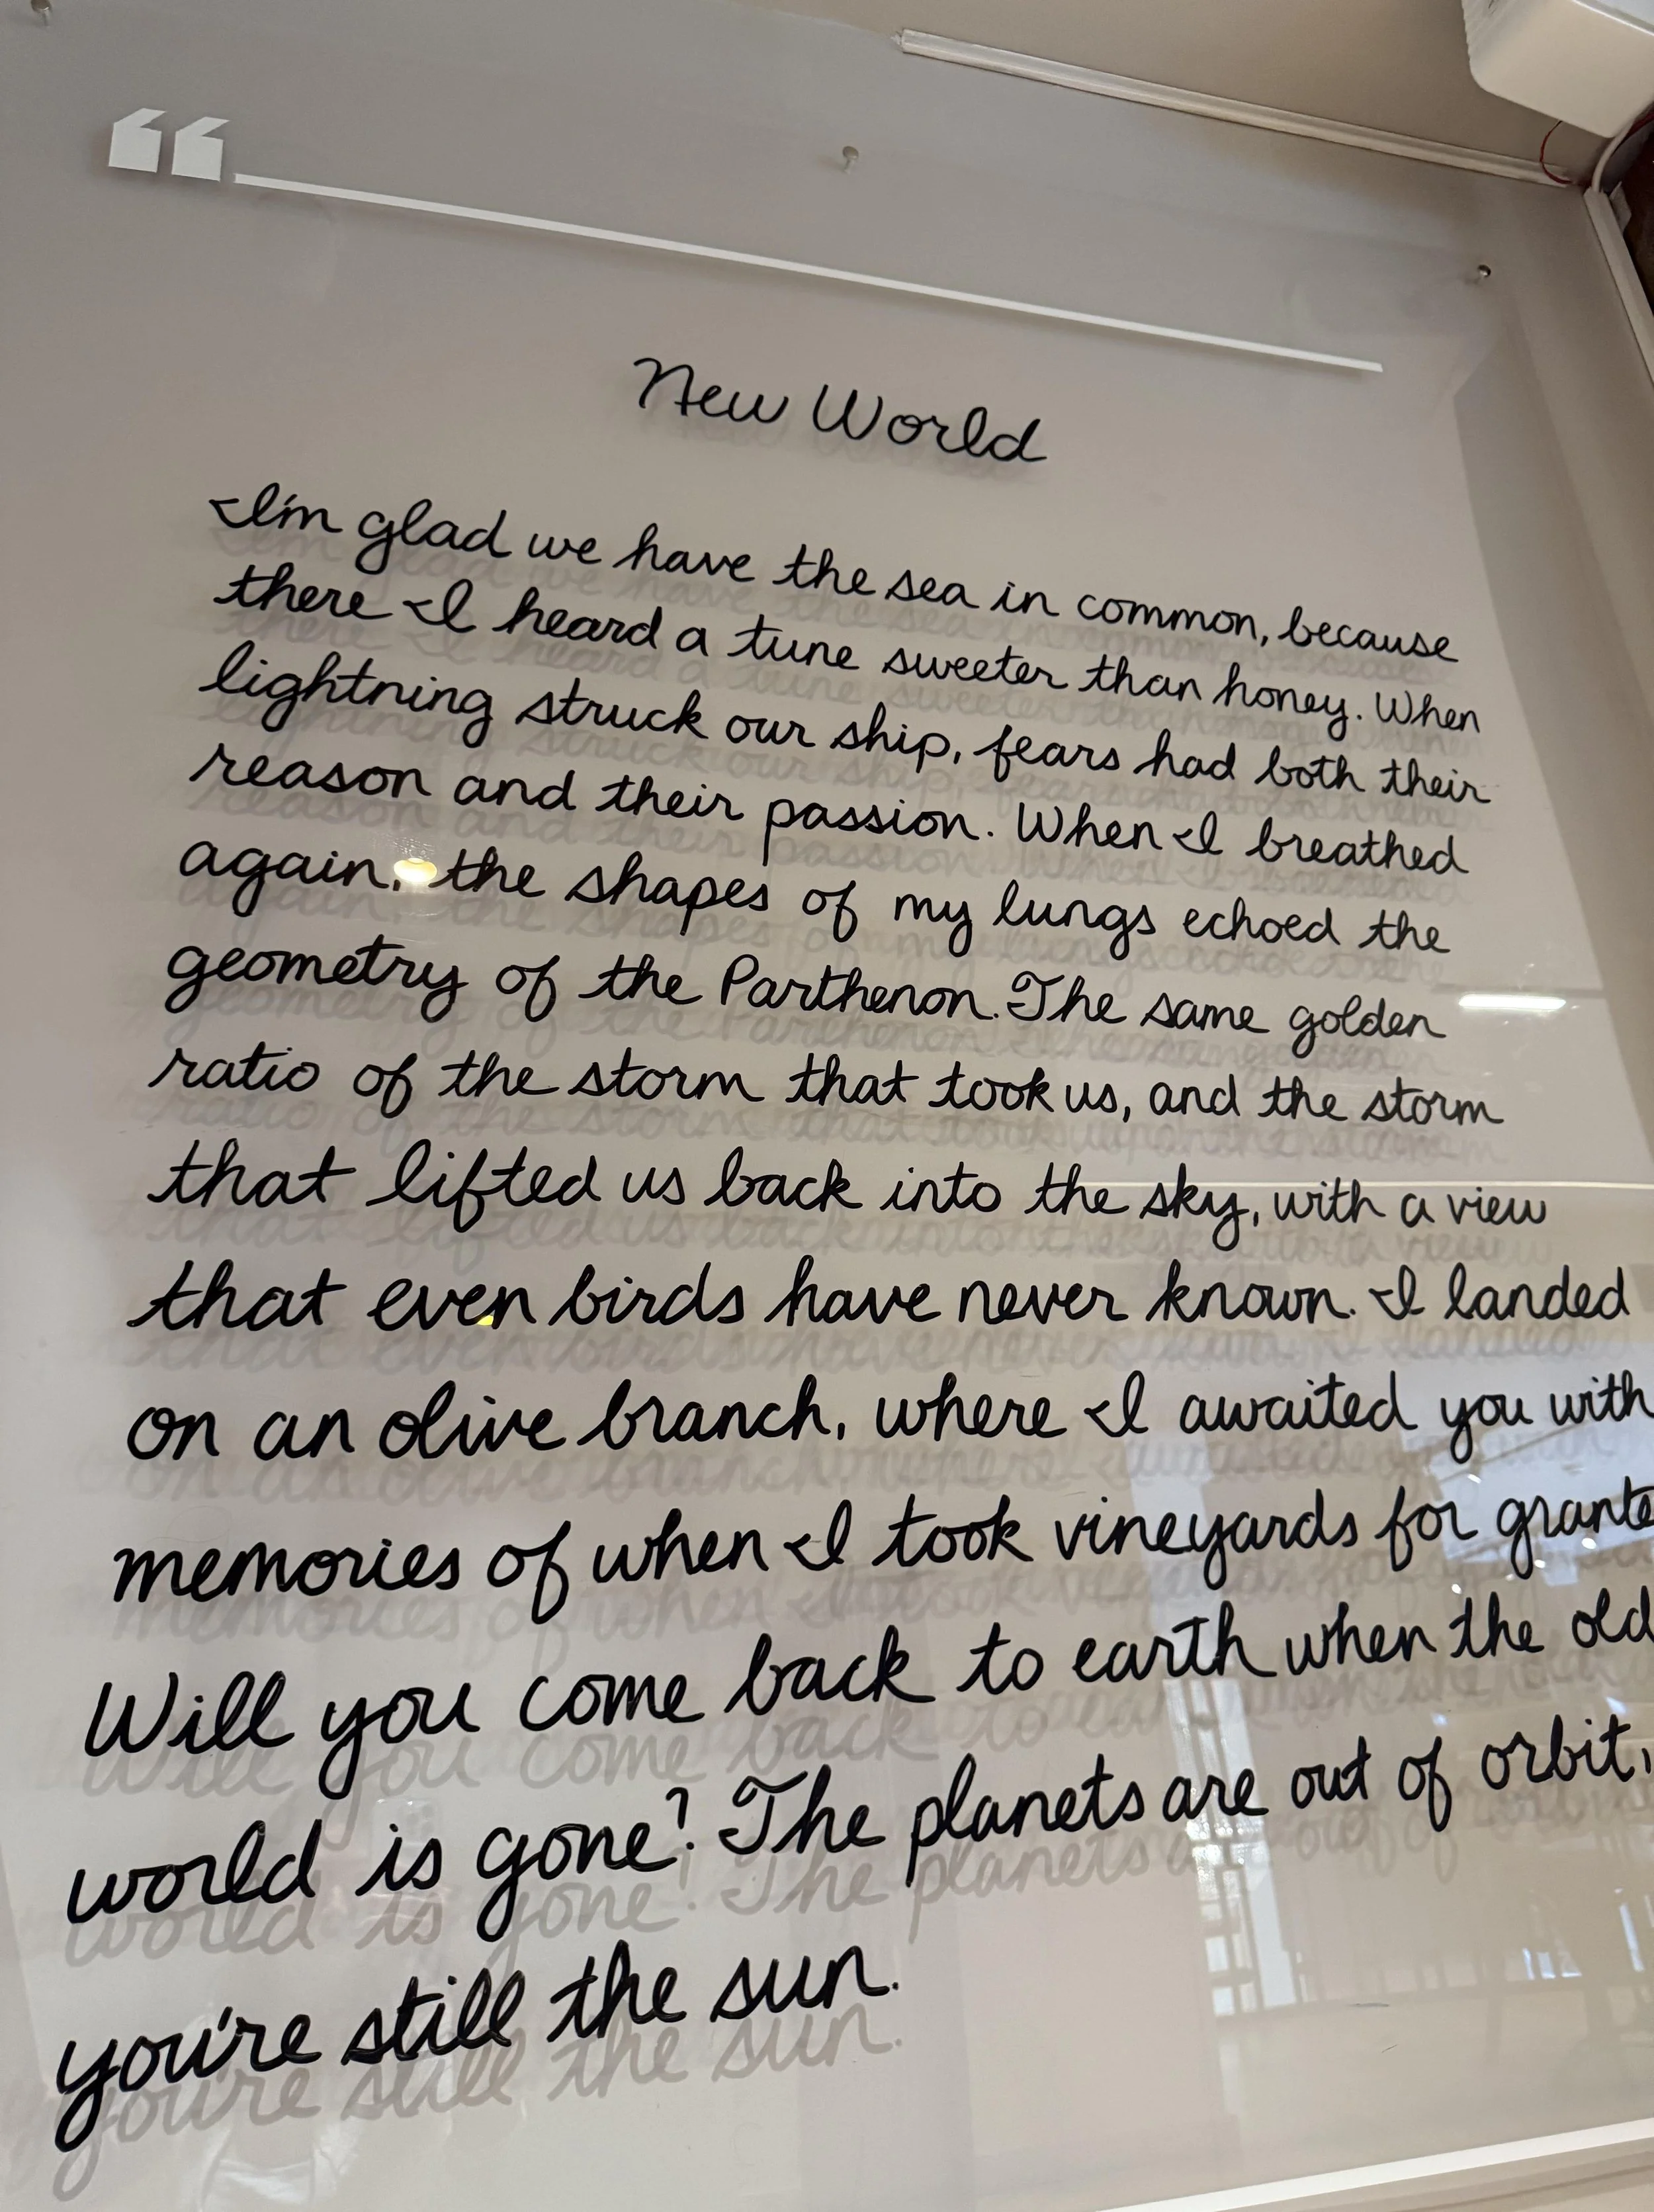 “
New World
I'm glad we have the sea in common, because
there I heard a tune sweeter than honey. When
lightning struck our ship, fears had both their
reason and their passion. When I breathed
again, the shapes of my lungs echoed the
geometry of the Parthenon. The same golden
ratio of the storm that took us, and the storm
that lifted us back into the sky, with a view
that even birds have never known. I landed
on an olive branch, where I awaited you with
memories of when I took vineyards for grante
Will you come back to earth when the old
world is gone? The planets are out of orbit,
you're still the sun.